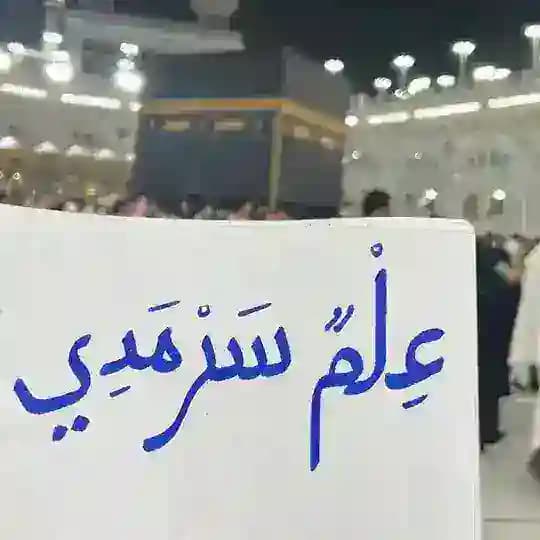 عِلْمٌ سَرْمَدِي